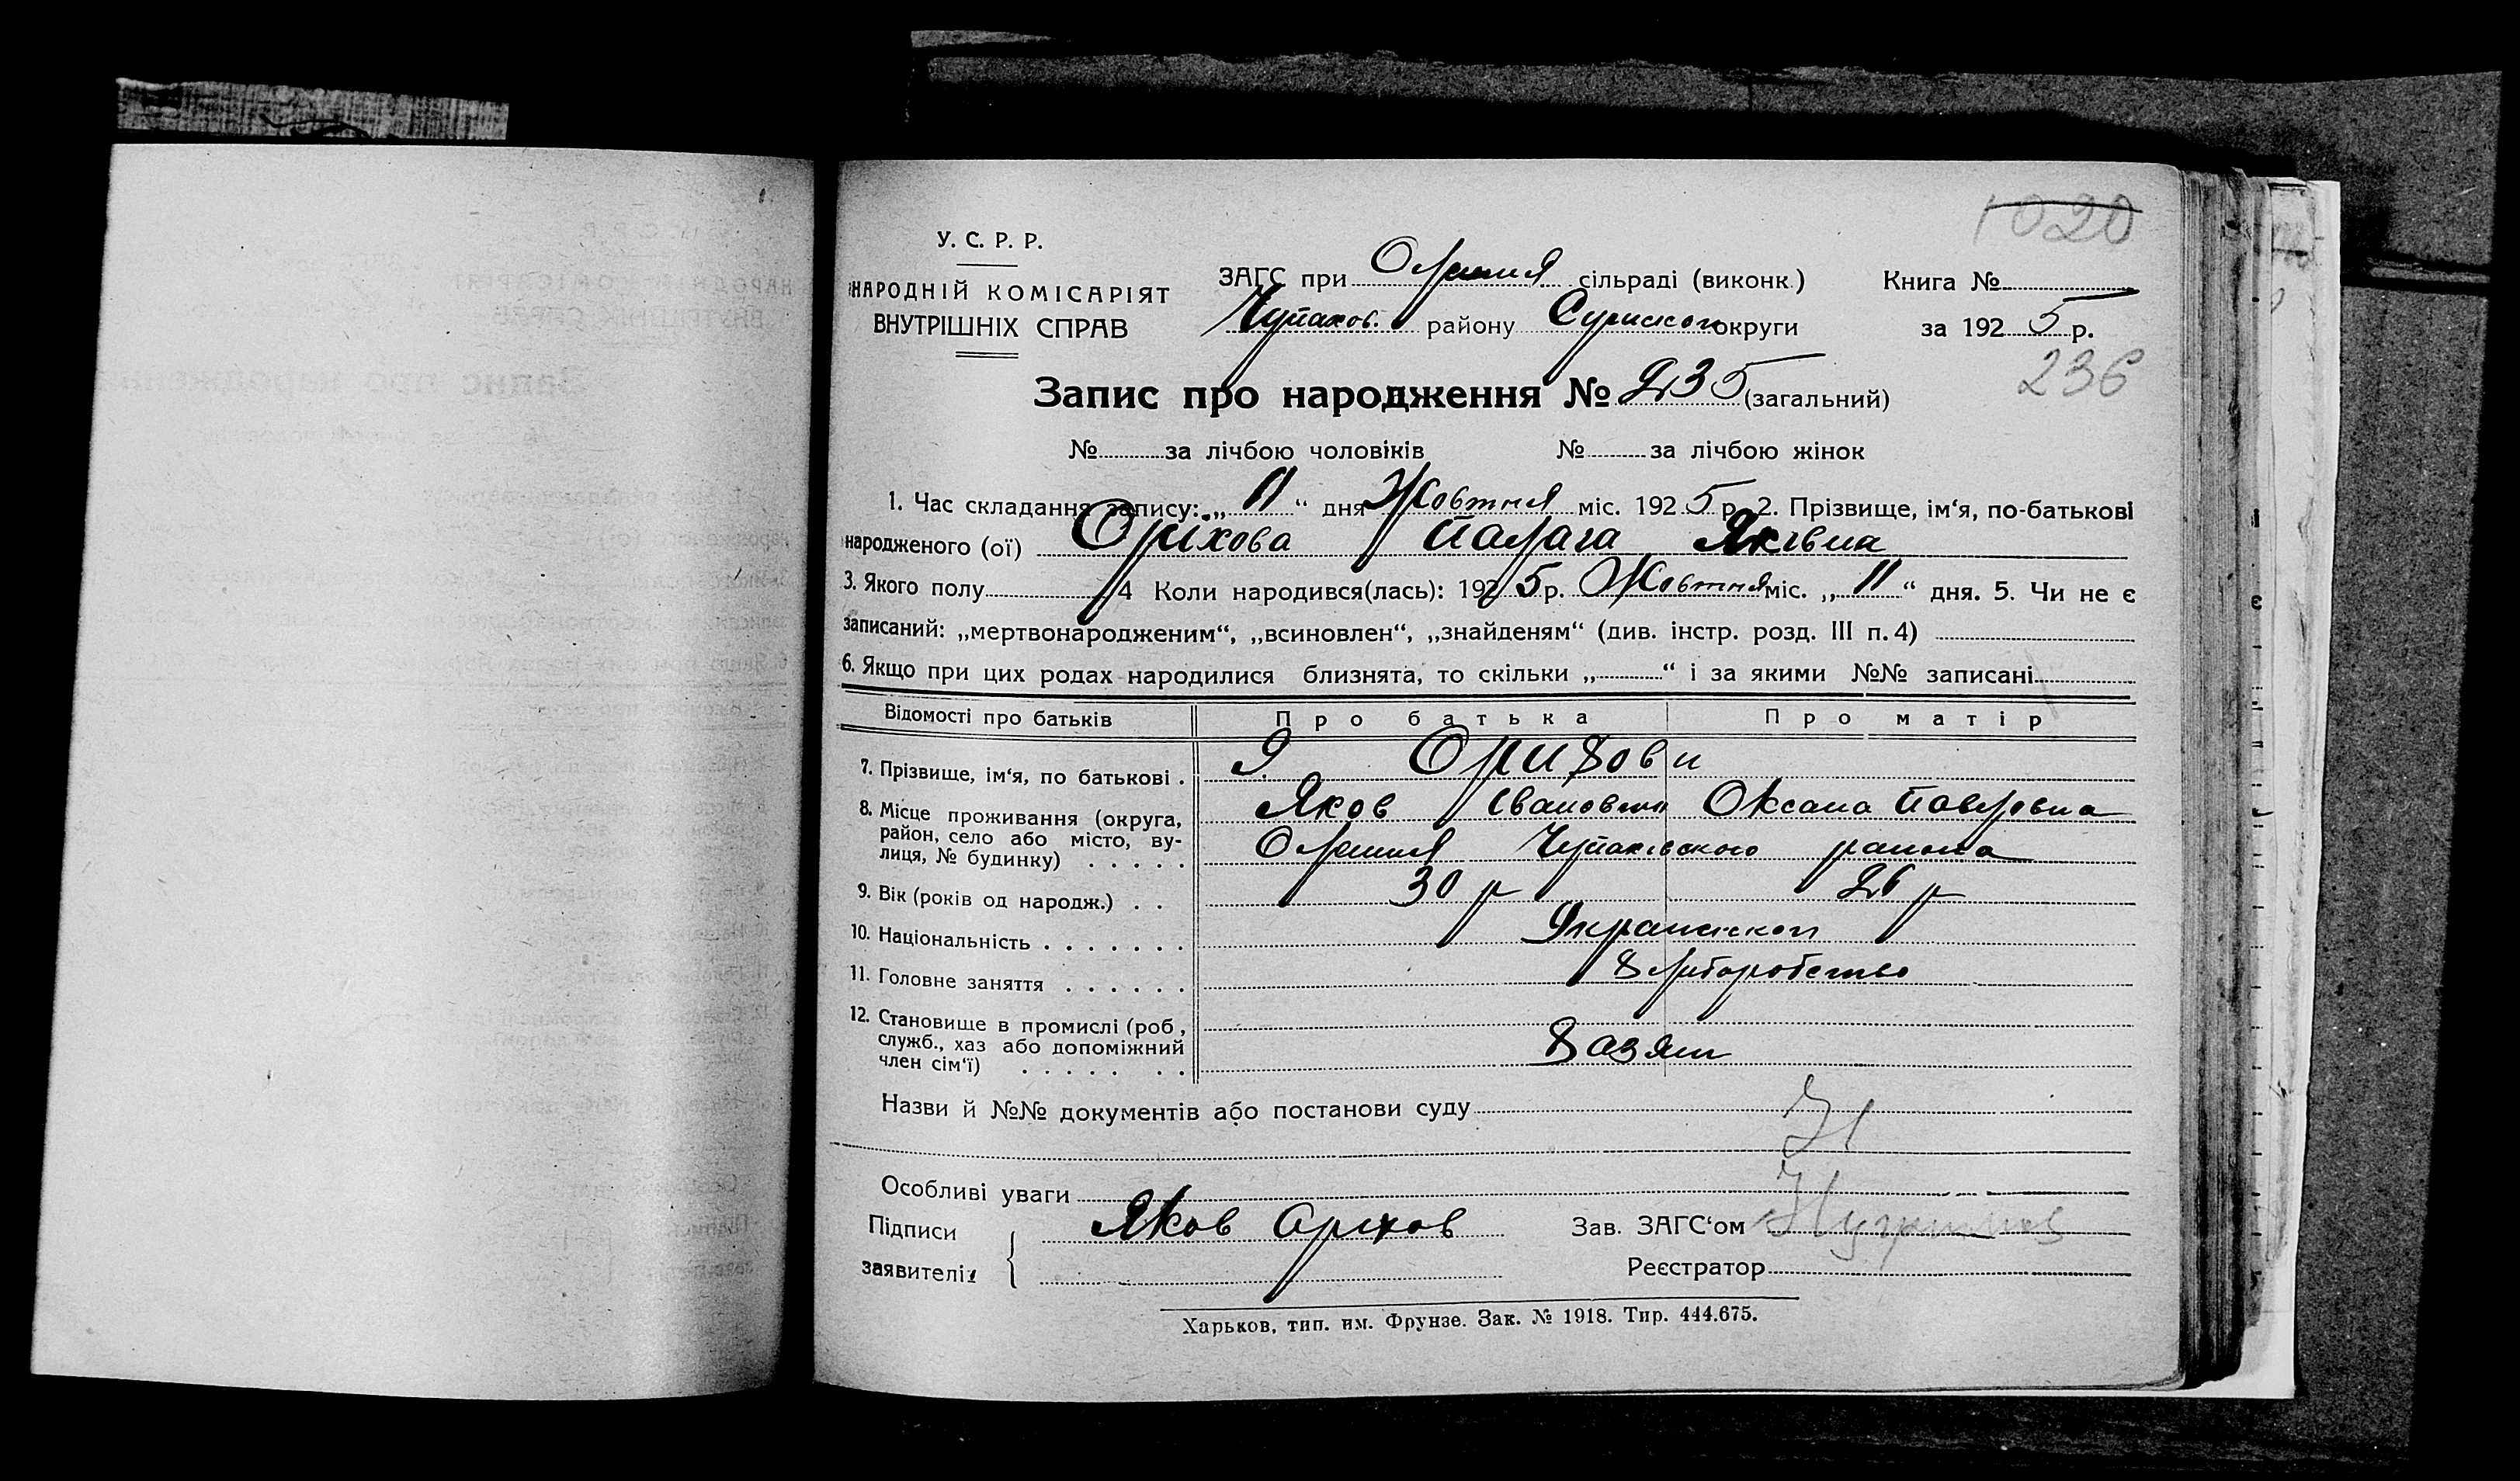 1020
У. С. Р. Р.
НАРОДНІЙ КОМІСАРІЯТ
ВНУТРІШНІХ СПРАВ
ЗАГС при Олешня сільраді (виконк.) Книга №
Чупахов. району Сумской округи за 1925 р.
Запис про народження № 235 (загальний)
236
№ за лічбою чоловіків № за лічбою жінок
1. Час складання запису: „11“ дня Жовтня міс. 1925 р. 2. Прізвище, ім‘я, по-батькові
народженого (ої) Оріхова Палага Яківна
3. Якого полу 4 Коли народився(лась): 1925 р. Жовтня міс. „11“ дня. 5. Чи не є
записаний: „мертвонародженим“, „всиновлен“, „знайденям“ (див. інстр. розд. III п. 4)
6. Якщо при цих родах народилися близнята, то скільки „ “ і за якими №№ записані
Відомості про батьків Про батька Про матір
7. Прізвище, ім‘я, по батькові . Орихови
Яков Ивановыч Оксана Павловна
8. Місце проживання (округа, район, село або місто, вулиця, № будинку) . . . . . Олешня Чупаховского района
9. Вік (років од народж.) . . 30 р 26 р
10. Національність . . . . . . .
11. Головне заняття . . . . . . Хлиборобство
12. Становище в промислі (роб, служб., хаз або допоміжний член сім‘ї) . . . . . . . Хазяин
Назви й №№ документів або постанови суду
Особливі уваги
Підписи Яков Оріхов Зав. ЗАГС‘ом
заявителів Реєстратор
Харьков, тип. им. Фрунзе. Зак. № 1918. Тир. 444.675.